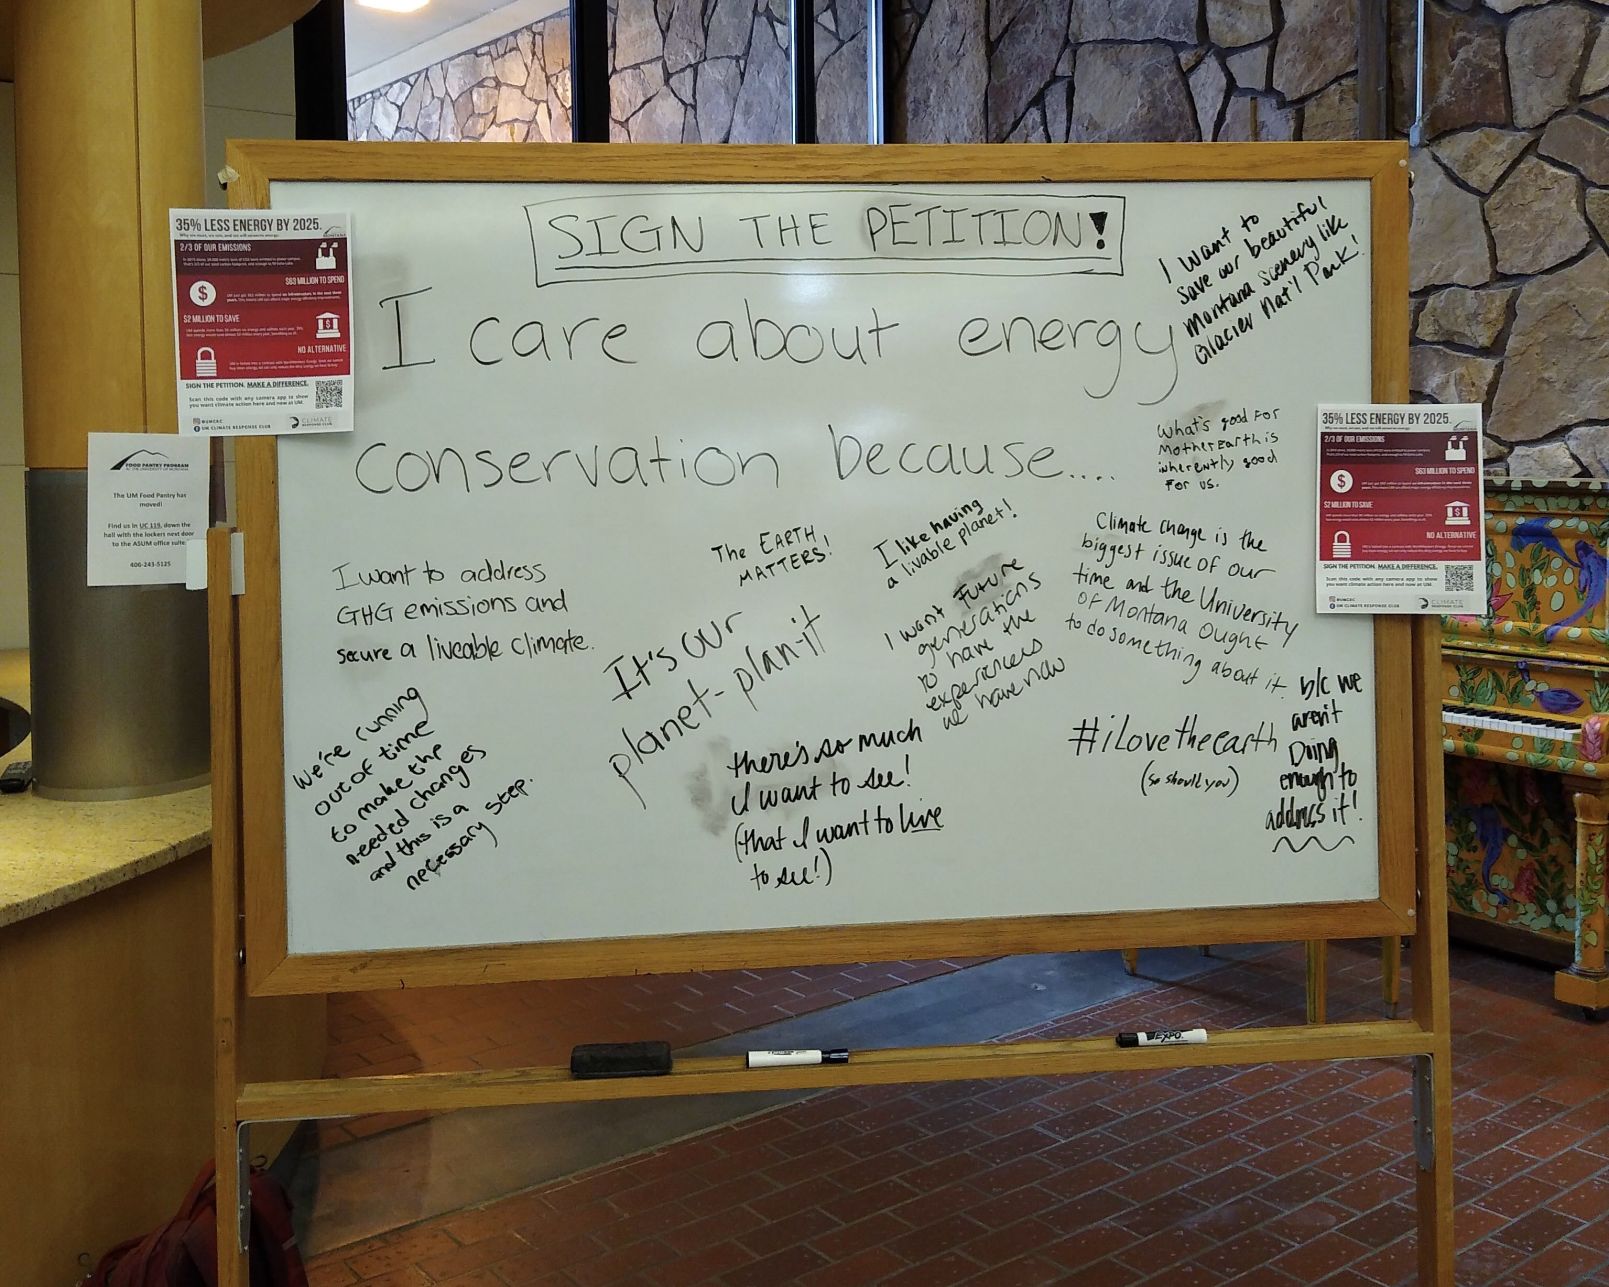 SIGN THE PETITION!
I care about energy
conservation because....
I want to
save our beautiful
Montana scenery like
Glacier Nat'l Park!
What's good for
Mother Earth is
inherently good
for us.
The EARTH
MATTERS!
I like having
a livable planet!
Climate change is the
biggest issue of our
time and the University
of Montana ought
to do something about it.
I want to address
GHG emissions and
secure a liveable climate.
It's our
planet-plan-it
I want future
generations
to have the
experiences
we have now
We're running
out of time
to make the
needed changes
and this is a
necessary step.
there's so much
I want to see!
(that I want to live
to see!)
#iLovetheearth
(so should you)
b/c we
aren't
Doing
enough to
address it!
35% LESS ENERGY BY 2025.
2/3 OF OUR EMISSIONS
$63 MILLION TO SPEND
$
$2 MILLION TO SAVE
NO ALTERNATIVE
SIGN THE PETITION. MAKE A DIFFERENCE.
Scan this code with any camera app to show
you want climate action here and now at UM.
@UMCRC
UM CLIMATE RESPONSE CLUB
CLIMATE
RESPONSE CLUB
FOOD PANTRY PROGRAM
AT THE UNIVERSITY OF MONTANA
The UM Food Pantry has
moved!
Find us in UC 119, down the
hall with the lockers next door
to the ASUM office suite.
406-243-5125
35% LESS ENERGY BY 2025.
2/3 OF OUR EMISSIONS
$63 MILLION TO SPEND
$
$2 MILLION TO SAVE
NO ALTERNATIVE
SIGN THE PETITION. MAKE A DIFFERENCE.
Scan this code with any camera app to show
you want climate action here and now at UM.
@UMCRC
UM CLIMATE RESPONSE CLUB
CLIMATE
RESPONSE CLUB
EXPO